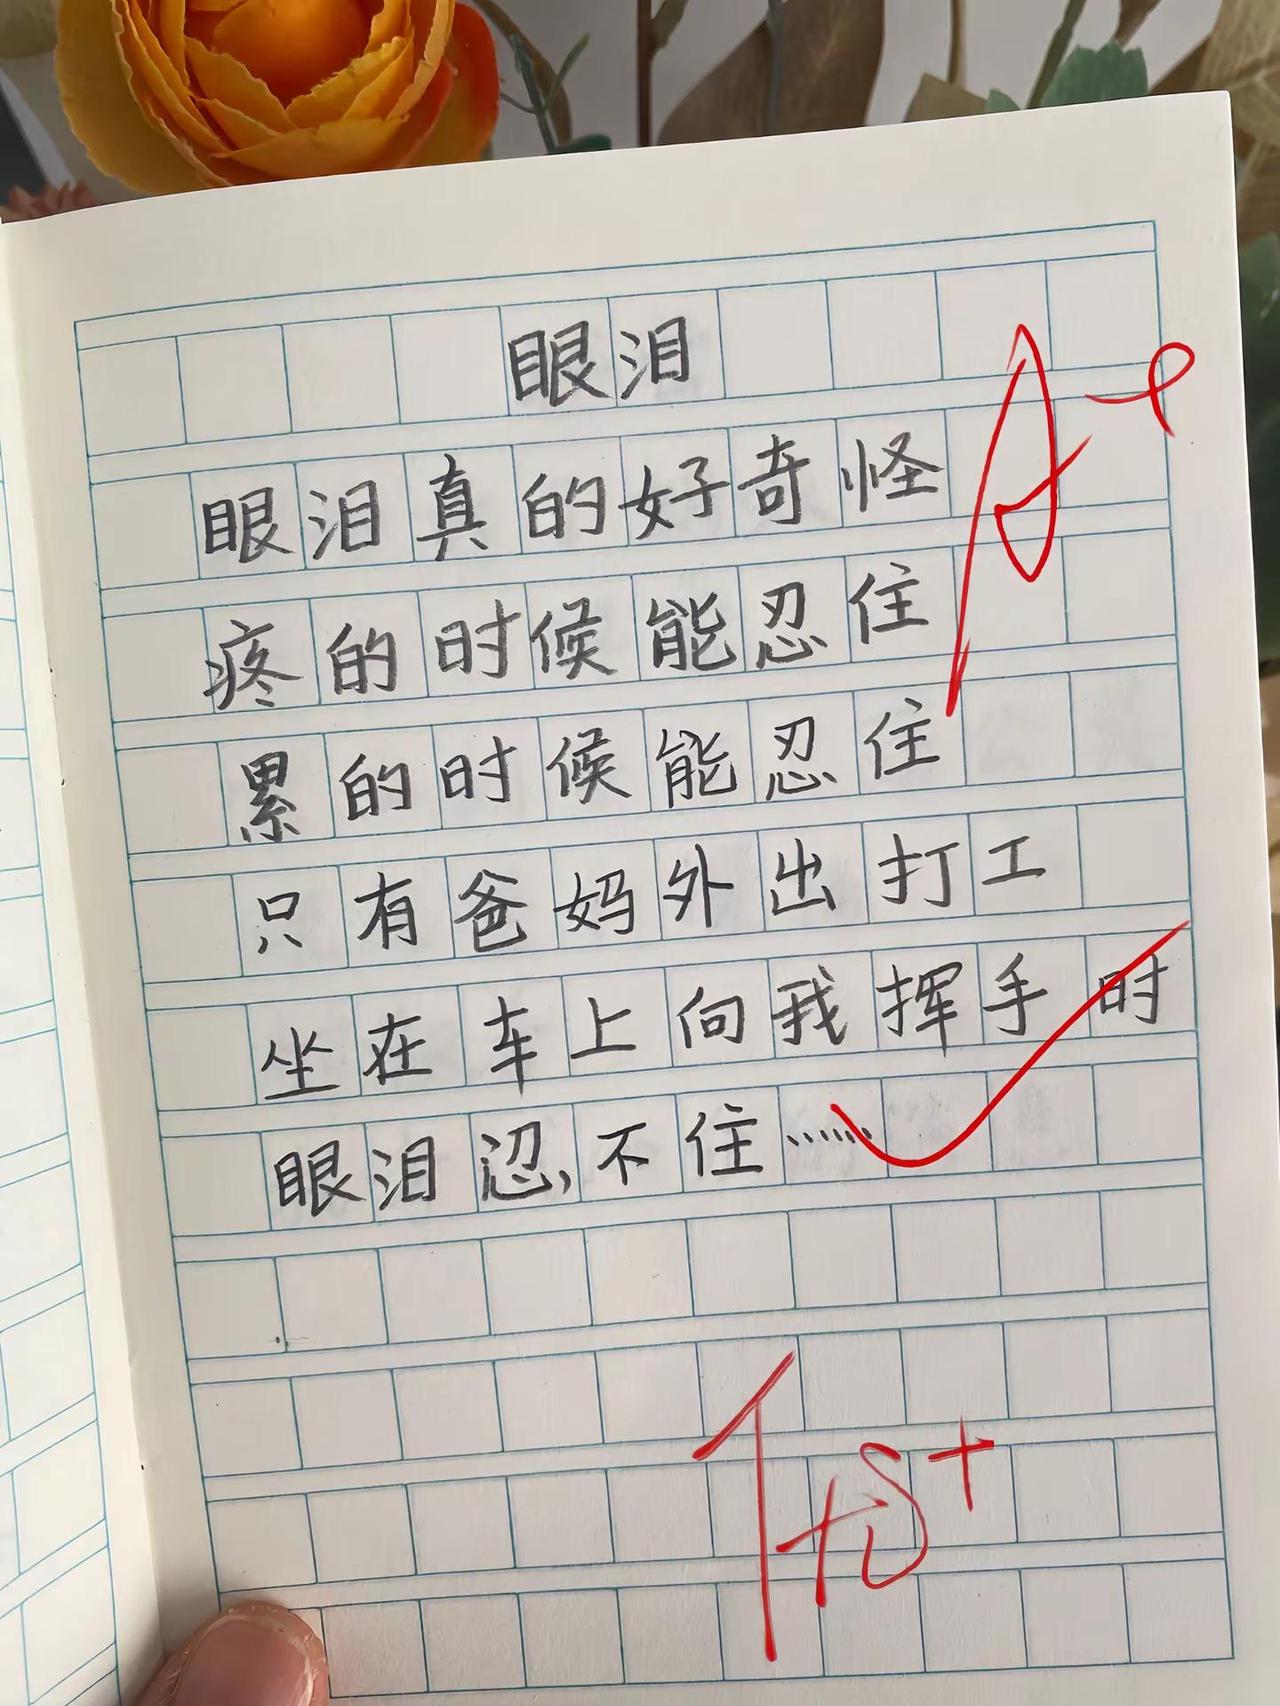 眼泪
眼泪真的好奇怪
疼的时候能忍住
累的时候能忍住
只有爸妈外出打工
坐在车上向我挥手时
眼泪忍,不住……